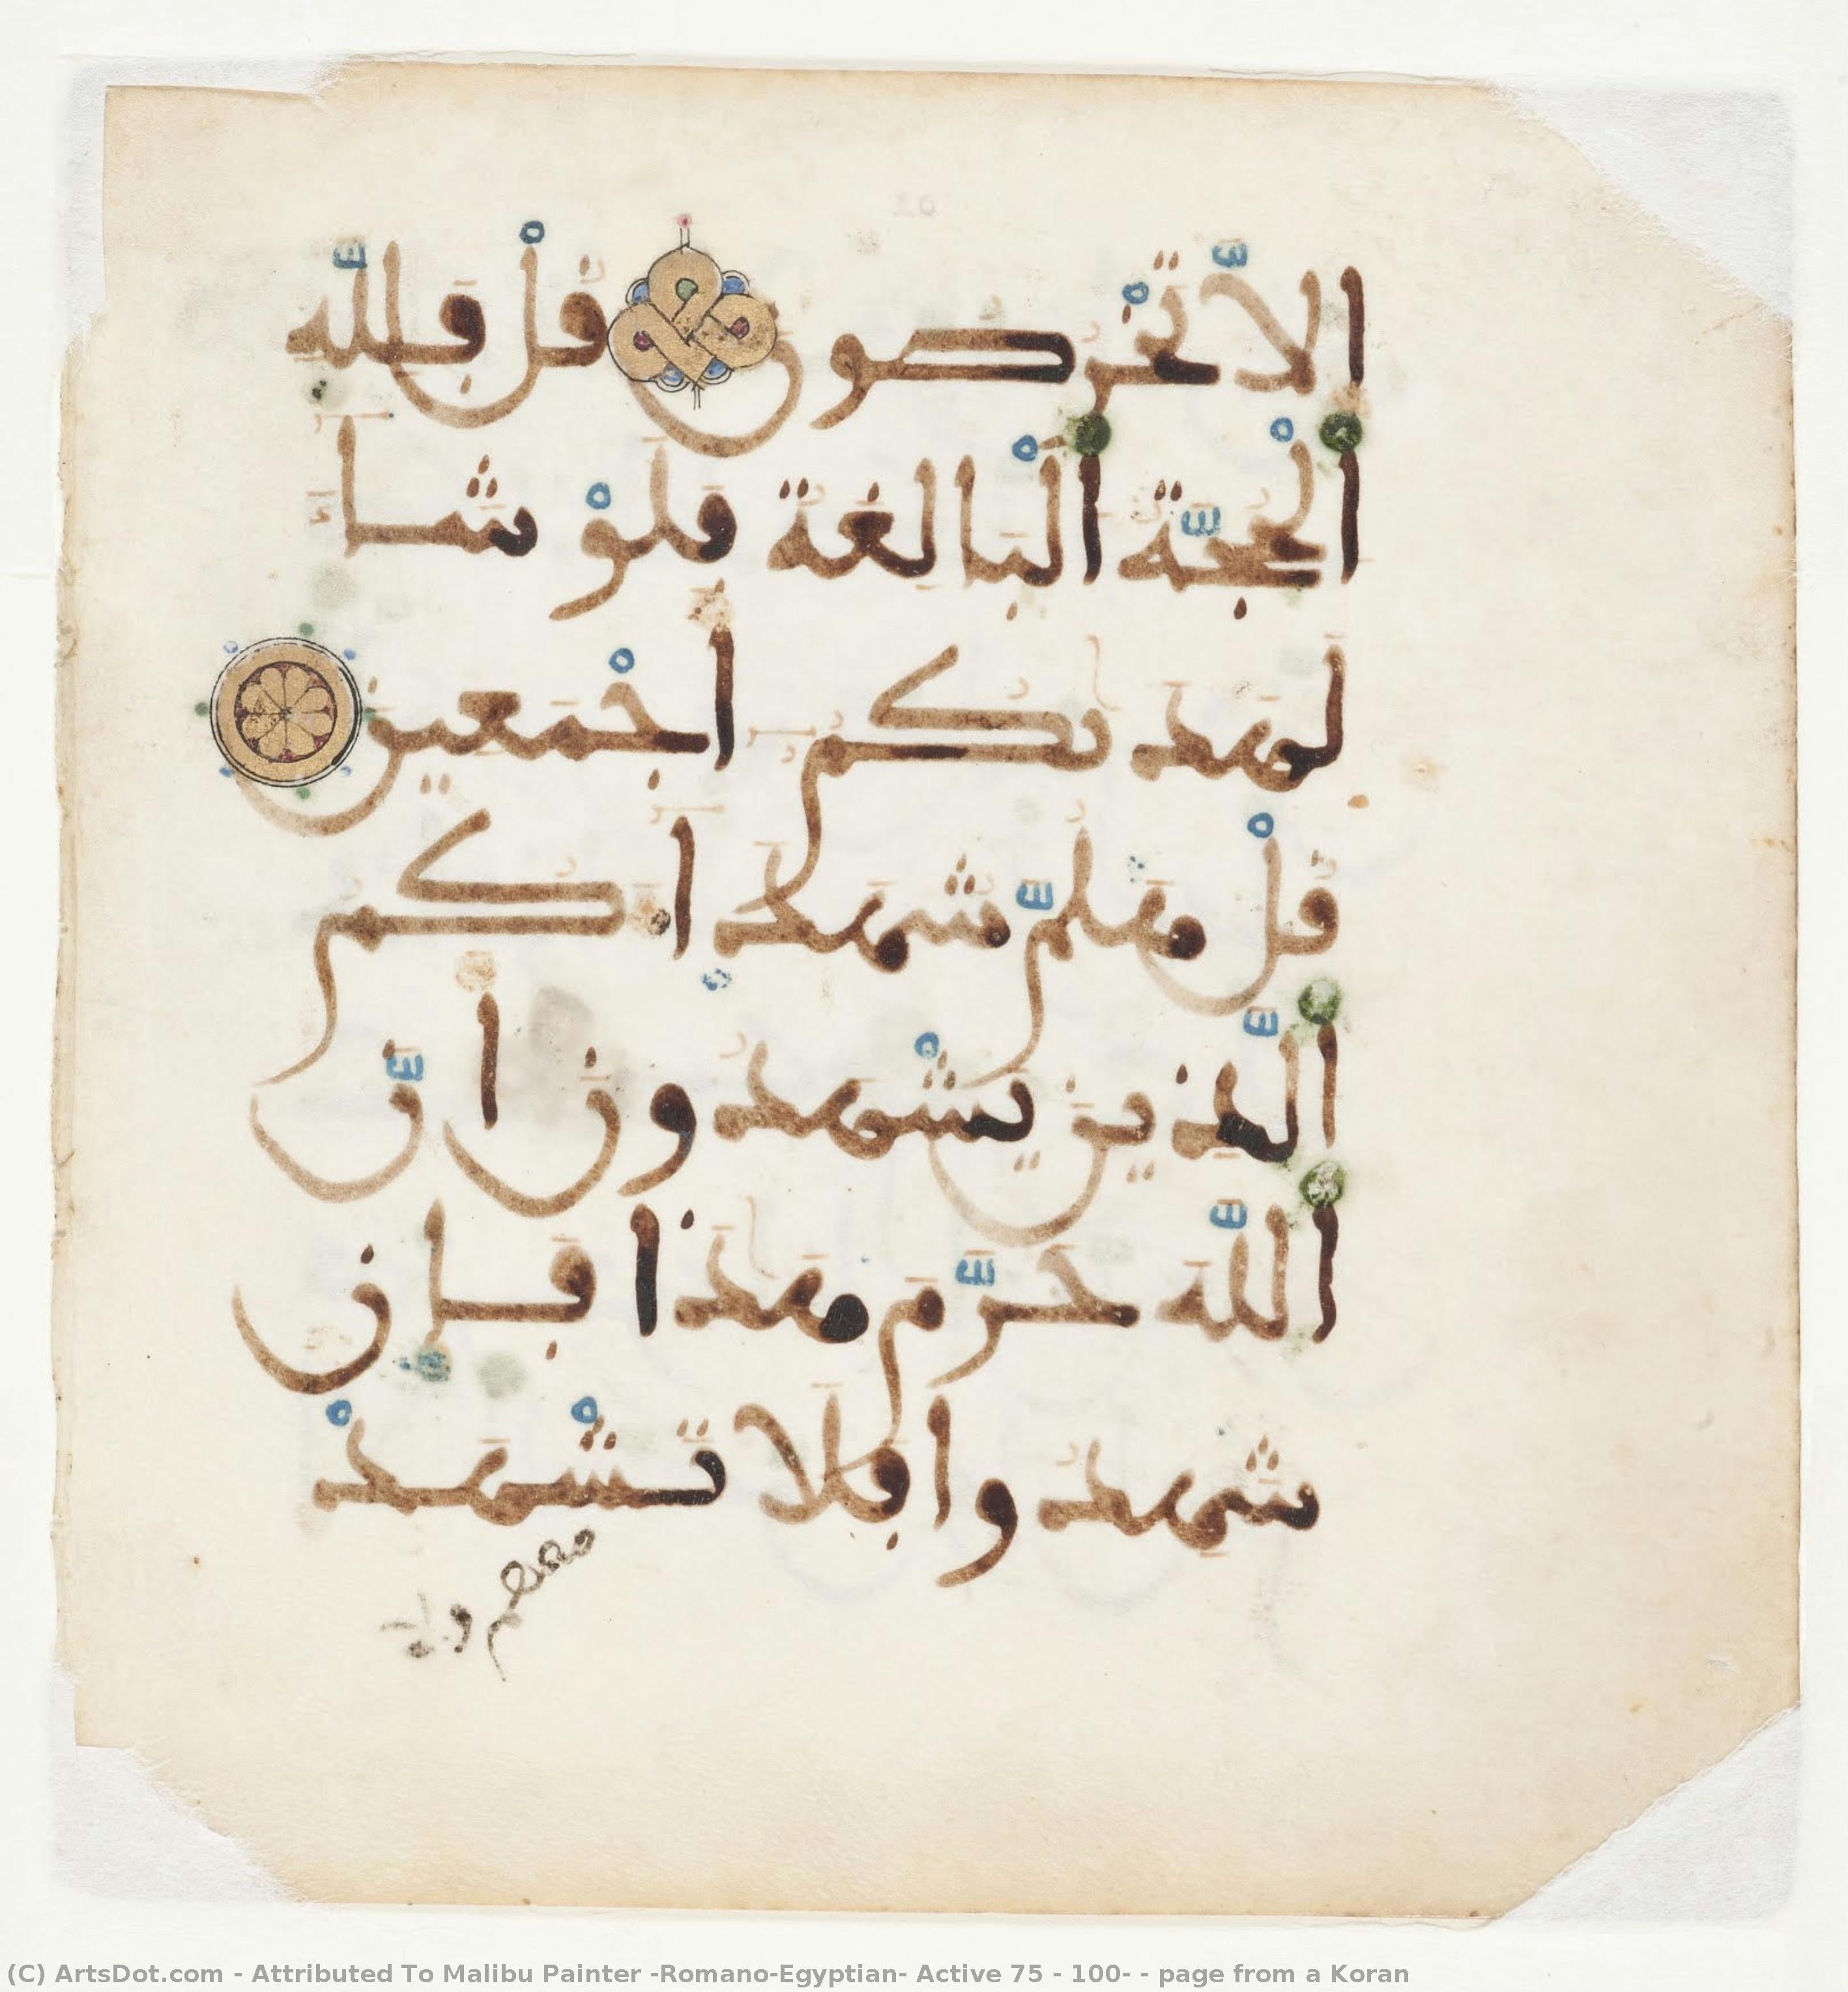 الا تخرصون قل فلله
الحجة البالغة فلو شا
لهدىكم اجمعين
قل هلم شهداكم
الذين يشهدون ان
الله حرم هذا فإن
شهدوا فلا تشهد
معهم ولا
(C) ArtsDot.com - Attributed To Malibu Painter -Romano-Egyptian- Active 75 - 100- - page from a Koran